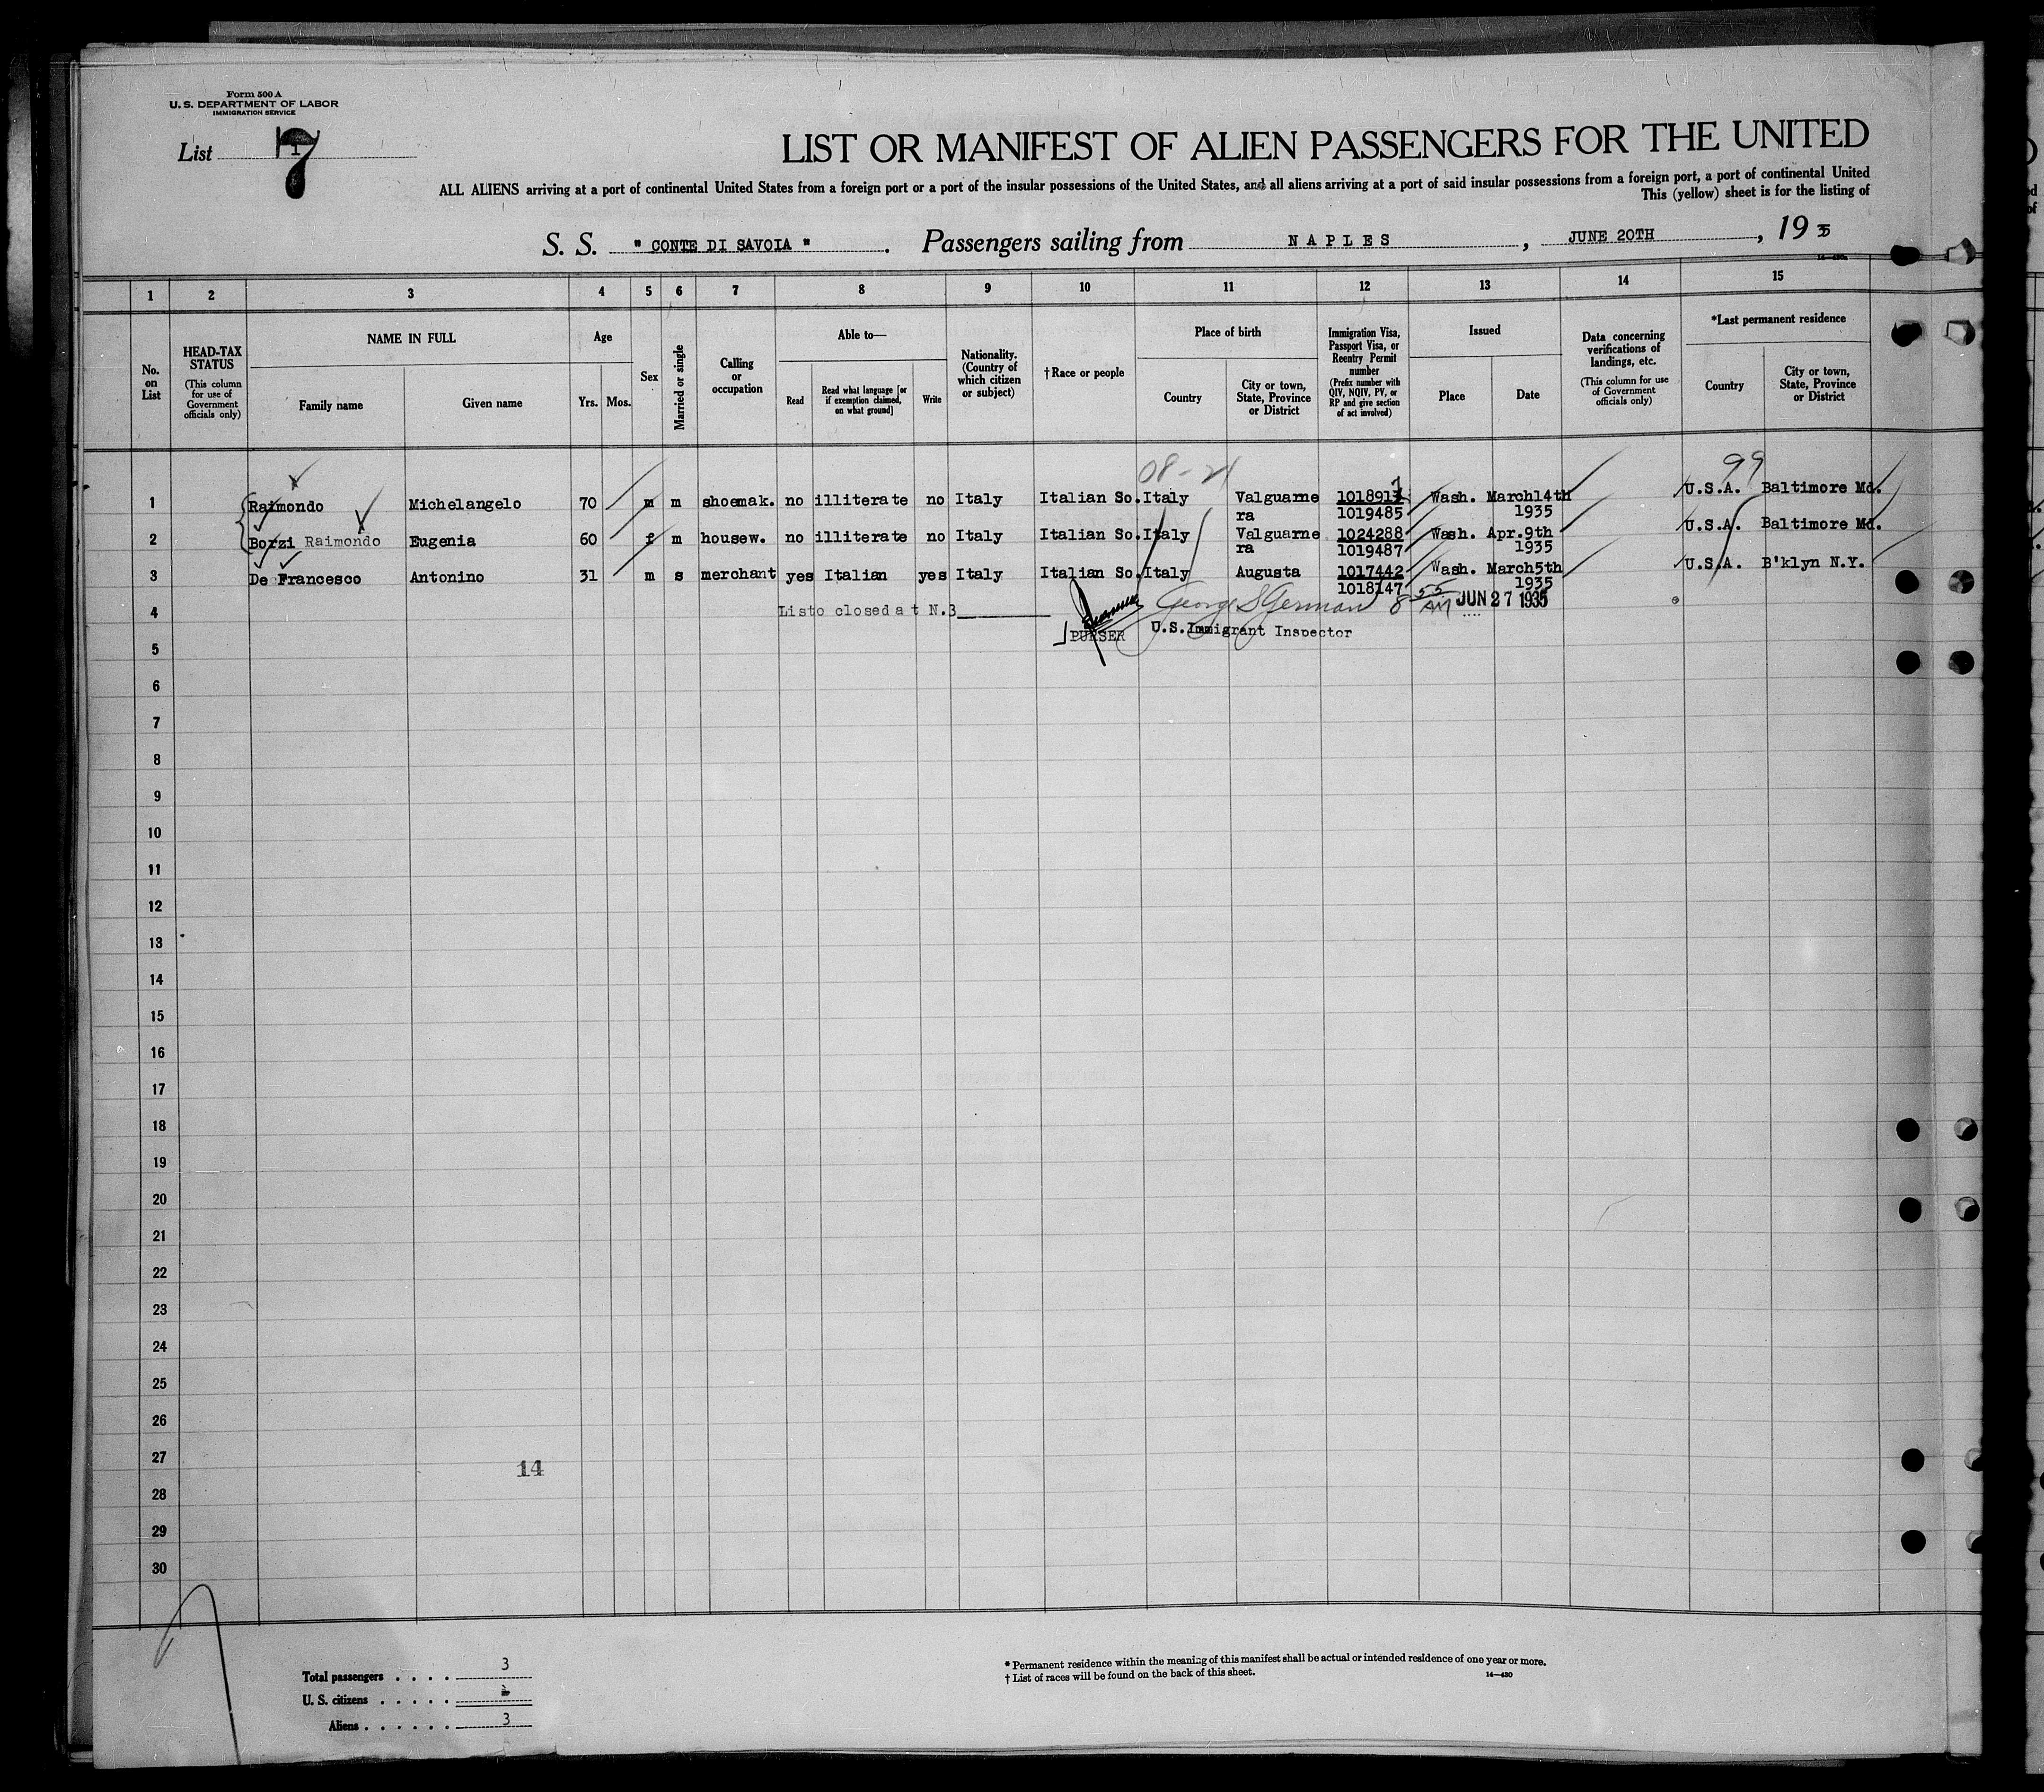 Form 500 A
U. S. DEPARTMENT OF LABOR
IMMIGRATION SERVICE
List 7
LIST OR MANIFEST OF ALIEN PASSENGERS FOR THE UNITED
ALL ALIENS arriving at a port of continental United States from a foreign port or a port of the insular possessions of the United States, and all aliens arriving at a port of said insular possessions from a foreign port, a port of continental United
This (yellow) sheet is for the listing of
S. S. " CONTE DI SAVOIA " . Passengers sailing from NAPLES , JUNE 20TH , 19 35
1 2 3 4 5 6 7 8 9 10 11 12 13 14 15
No. on List
HEAD-TAX STATUS (This column for use of Government officials only)
NAME IN FULL
Family name
Given name
Age
Yrs.
Mos.
Sex
Married or single
Calling or occupation
Able to—
Read
Read what language [or if exemption claimed, on what ground]
Write
Nationality. (Country of which citizen or subject)
†Race or people
Place of birth
Country
City or town, State, Province or District
Immigration Visa, Passport Visa, or Reentry Permit number (Prefix number with QIV, NQIV, PV, or RP and give section of act involved)
Issued
Place
Date
Data concerning verifications of landings, etc. (This column for use of Government officials only)
*Last permanent residence
Country
City or town, State, Province or District
99
1 Raimondo Michelangelo 70 m m shoemak. no illiterate no Italy Italian So. Italy Valguarne Wash. March14th U.S.A. Baltimore Md.
ra 1019485 1935
2 Borzi Raimondo Eugenia 60 f m housew. no illiterate no Italy Italian So. Italy Valguarne 1024288 Wash. Apr.9th U.S.A. Baltimore Md.
ra 1019487 1935
3 De Francesco Antonino 31 m s merchant yes Italian yes Italy Italian So. Italy Augusta 1017442 Wash. March5th U.S.A. B'klyn N.Y.
1018147 1935
4 Listo closed at N.3 George S German 8 55 AM JUN 27 1935
PURSER U.S.Immigrant Inspector
5
6
7
8
9
10
11
12
13
14
15
16
17
18
19
20
21
22
23
24
25
26
27 14
28
29
30
Total passengers . . . . 3
U. S. citizens . . . . .
Aliens . . . . . . 3
* Permanent residence within the meaning of this manifest shall be actual or intended residence of one year or more.
† List of races will be found on the back of this sheet. 14—430